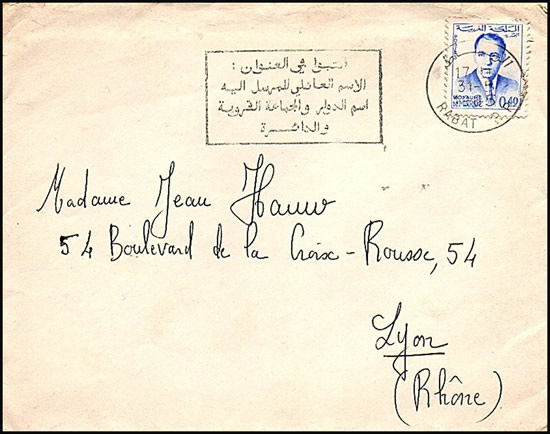 اكتبوا في العنوان :
الاسم العائلي للمرسل اليه
اسم الدوار والجماعة القروية
والدائرة
المملكة المغربية
17
31
0,40
RABAT R.P
Madame Jean
54 Boulevard de la Croix-Rousse, 54
Lyon
(Rhône)